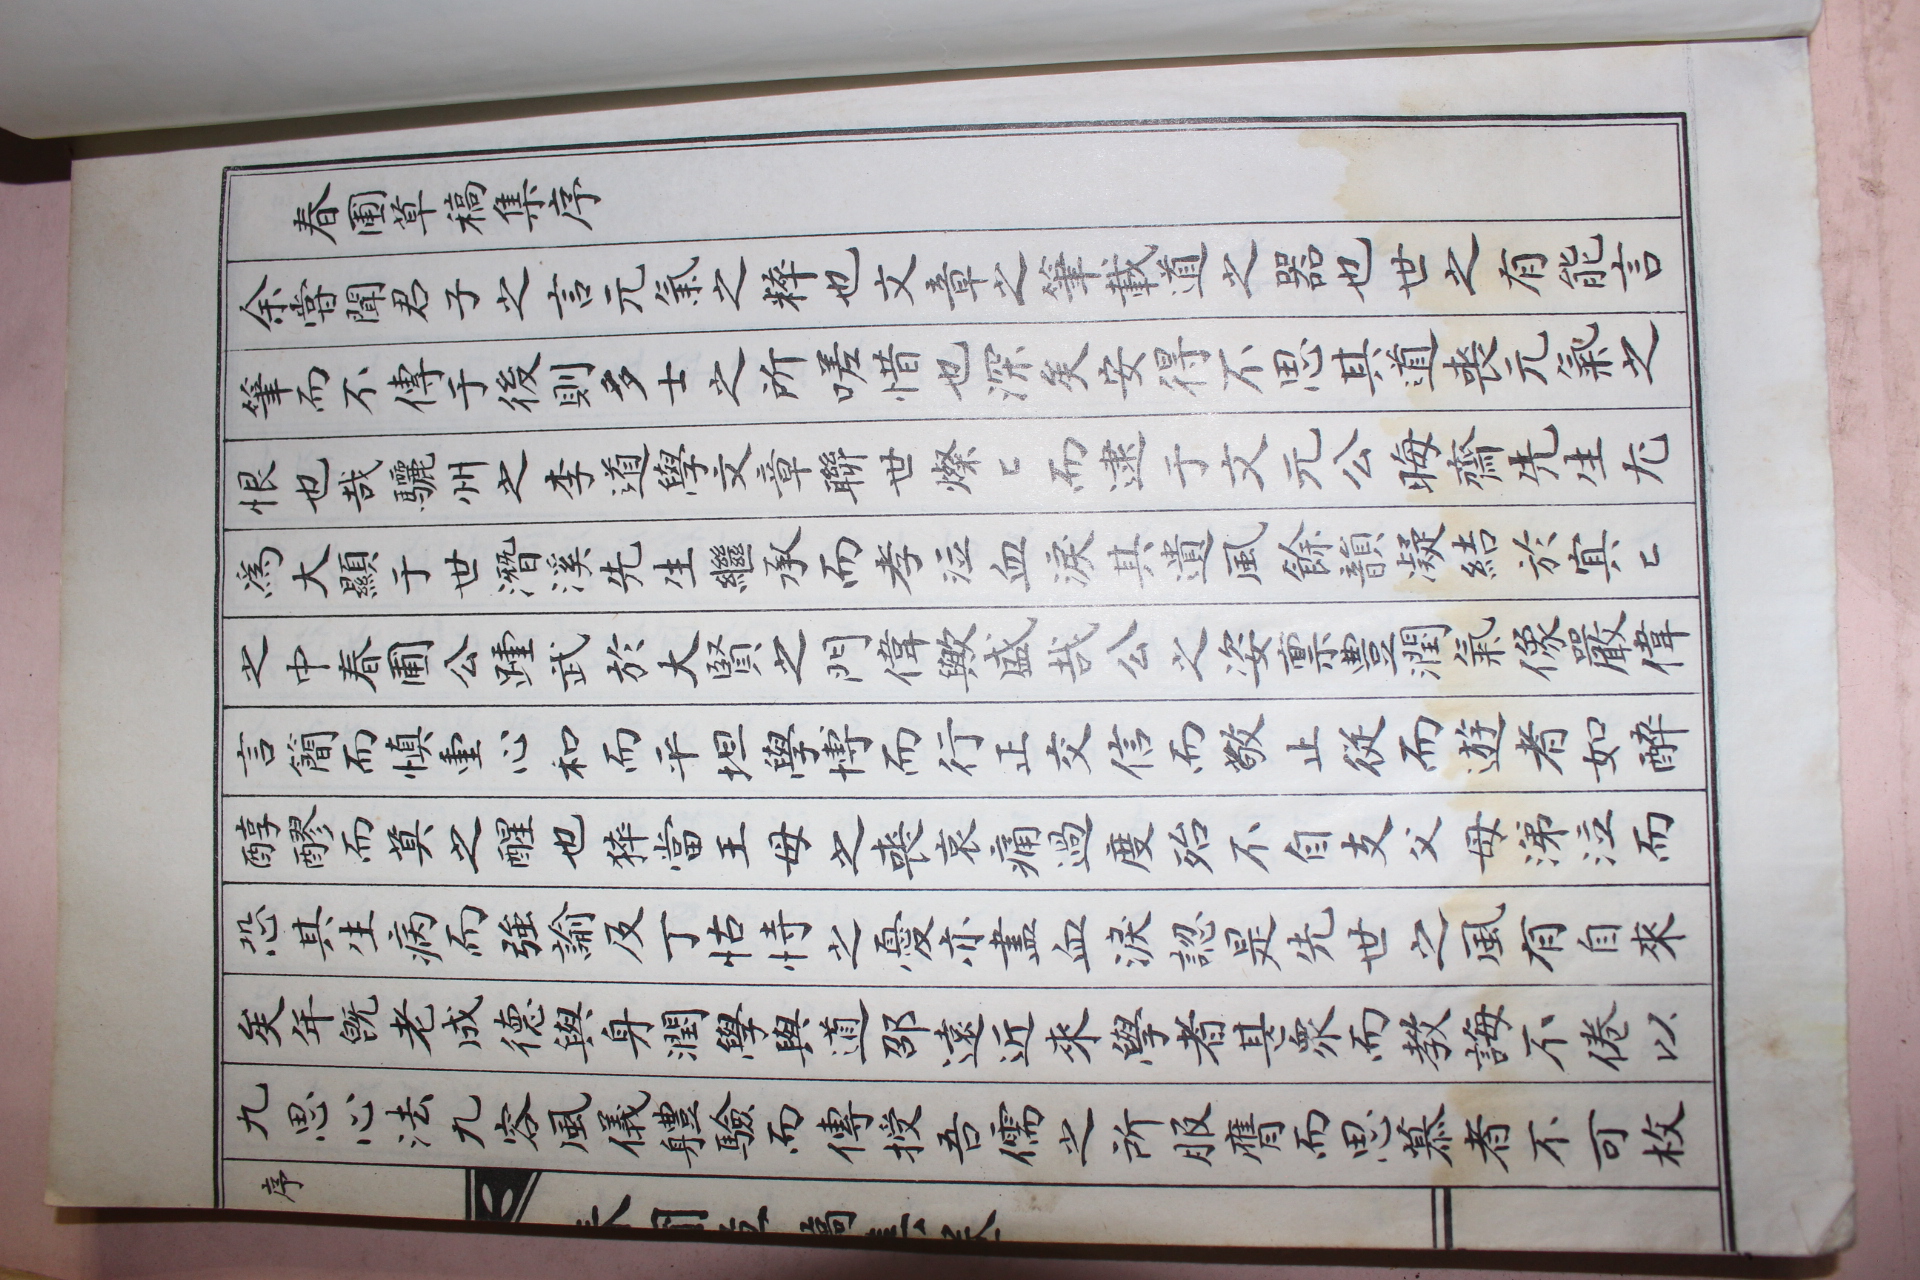 春圃草稿集序
余嘗聞君子之言元氣之粹也文章之筆載道之器也世之有能言
筆而不傳于後則多士之所嗟惜也深矣安得不思其道喪元氣之
恨也哉驪州之李道學文章聯世燦〻而逮于文元公晦齋先生尤
爲大顯于世潛溪先生繼承而孝泣血淚其遺風餘韻凝結於寘〻
之中春圃公踵武於大賢之門偉歟盛哉公之姿禀豐潤氣像嚴偉
言簡而愼重心和而平坦學博而行正交信而敬止從而遊者如醉
醇醪而莫之醒也猝當王母之喪哀痛過度殆不自支父母涕泣而
恐其生病而強諭及丁怙恃之憂亦盡血淚認是先世之風有自來
矣年旣老成德與身潤學與道邵遠近來學者甚衆而教誨不倦以
九思心法九容風儀軆驗而傳授吾儒之所服膺而思慕者不可枚
序